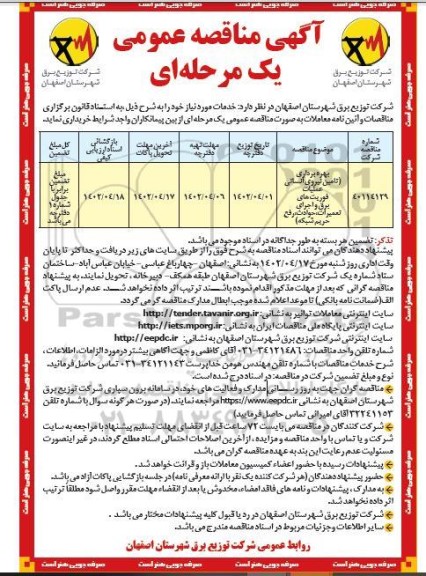 آگهی مناقصه عمومی
یک مرحله‌ای
شرکت توزیع برق
شهرستان اصفهان
شرکت توزیع برق
شهرستان اصفهان
شرکت توزیع برق شهرستان اصفهان در نظر دارد: خدمات مورد نیاز خود را به شرح ذیل ،به استناد قانون برگزاری
مناقصات و آئین نامه معاملات به صورت مناقصه عمومی یک مرحله ای از بین پیمانکاران واجد شرایط خریداری نماید.
شماره مناقصه شرکت | موضوع مناقصه | تاریخ توزیع دفترچه | مهلت تهیه دفترچه | آخرین مهلت تحویل پاکات | بازگشائی اسناد ارزیابی کیفی | کل مبلغ تضمین
۴۰۲۱۴۱۲۹ | بهره برداری (تامین نیروی انسانی عملیات فوریت های برق و اجرای تعمیرات، حوادث، رفع حریم شبکه) | ۱۴۰۲/۰۴/۰۱ | ۱۴۰۲/۰۴/۰۶ | ۱۴۰۲/۰۴/۱۷ | ۱۴۰۲/۰۴/۱۸ | مبلغ تضمین برابر با جدول شماره ۱ دفترچه می باشد
تذکر: تضمین هر بسته به طور جداگانه در اسناد موجود می باشد.
پیشنهاد دهندگان می توانند اسناد مناقصه به شرح فوق را از طریق سایت های زیر دریافت و حداکثر تا پایان
وقت اداری روز شنبه مورخ ۱۴۰۲/۰۴/۱۷ به نشانی: اصفهان - چهارباغ عباسی - خیابان عباس آباد - ساختمان
ستاد شماره یک شرکت توزیع برق شهرستان اصفهان طبقه همکف - دبیرخانه ، تحویل نمایند، به پیشنهاد
مناقصه گرانی که بعد از مهلت مذکور اقدام نموده باشند ترتیب اثر داده نخواهد شد. عدم ارسال پاکت
الف(ضمانت نامه بانکی) تا موعد اعلام شده موجب ابطال مدارک مناقصه گر می گردد.
سایت اینترنتی معاملات توانیر به نشانی: http://tender.tavanir.org.ir
سایت اینترنتی پایگاه ملی مناقصات ایران به نشانی: http://iets.mporg.ir
سایت اینترنتی شرکت توزیع برق شهرستان اصفهان به نشانی: http://eepdc.ir
شماره تلفن واحد مناقصات: ۳۴۱۲۱۴۸۶-۰۳۱ آقای کاظمی و جهت آگاهی بیشتر در مورد الزامات، اطلاعات،
شرح خدمات مناقصات با شماره تلفن مهندس هومن خداپرست ۳۴۱۲۱۱۴۲-۰۳۱ تماس حاصل فرمائید.
نوع و مبلغ تضمین شرکت در مناقصه: در اسناد درج شده است.
مناقصه گران جهت به روز رسانی مدارک و فعالیت های خود، در سامانه برون سپاری شرکت توزیع برق
شهرستان اصفهان به نشانی https://www.eepdc.ir مراجعه نمایند.(در صورت هر گونه سوال با شماره تلفن
۳۲۲۴۱۱۵۳ آقای امیرانی تماس حاصل فرمایید)
شرکت کنندگان در مناقصه می بایست ۷۲ ساعت قبل از انقضای مهلت تسلیم پیشنهاد با مراجعه به سایت
شرکت و یا تماس با واحد مناقصه و مزایده ، از آخرین اصلاحات احتمالی اسناد مطلع گردند، در غیر اینصورت
مسئولیت عدم رعایت این بند به عهده مناقصه گران می باشد.
پیشنهادات رسیده با حضور اعضاء کمیسیون معاملات باز و قرائت خواهد شد.
حضور پیشنهاد دهندگان (هر شرکت کننده یک نفر با ارائه معرفی نامه) در جلسه بازگشایی پاکات آزاد می باشد.
به مدارک ، پیشنهادات و نامه های فاقد امضاء، مخدوش یا بعد از انقضاء مهلت مقرر واصل شود مطلقاً ترتیب
اثر داده نخواهد شد.
شرکت توزیع برق شهرستان اصفهان در رد یا قبول کلیه پیشنهادات مختار می باشد .
سایر اطلاعات و جزئیات مربوط در اسناد مناقصه مندرج می باشد.
روابط عمومی شرکت توزیع برق شهرستان اصفهان